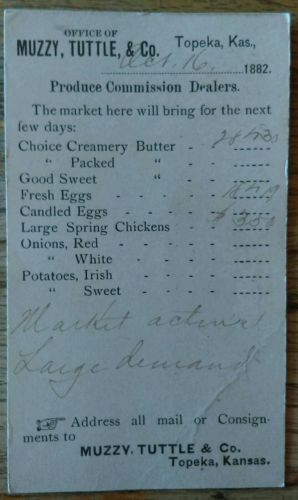 OFFICE OF
MUZZY, TUTTLE, & Co. Topeka, Kas.,
Oct. 16, 1882.
Produce Commission Dealers.
The market here will bring for the next
few days:
Choice Creamery Butter - 28
" Packed " - -
Good Sweet " -
Fresh Eggs - - - -
Candled Eggs - - - -
Large Spring Chickens -
Onions, Red - - - -
" White - - - -
Potatoes, Irish - - - -
" Sweet - - - -
Market active
Large demand
☞ Address all mail or Consign-
ments to
MUZZY, TUTTLE & Co.
Topeka, Kansas.